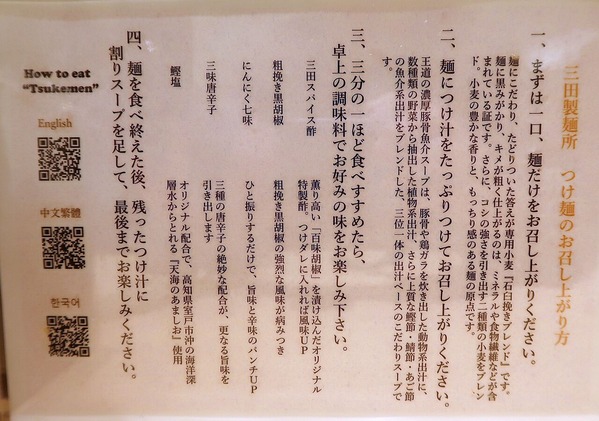 三田製麺所 つけ麺のお召し上がり方
一、まずは一口、麺だけをお召し上がりください。
麺にこだわり、たどりついた答えが専用小麦『石臼挽きブレンド』です。
麺に黒みがかり、キメが粗く仕上がるのは、ミネラルや食物繊維などが含
まれている証です。さらに、コシの強さを引き出す二種類の小麦をブレン
ド。小麦の豊かな香りと、もっちり感のある麺の原点です。
二、麺につけ汁をたっぷりつけてお召し上がりください。
王道の濃厚豚骨魚介スープは、豚骨や鶏ガラを炊き出した動物系出汁に、
数種類の野菜から抽出した植物系出汁、さらに上質な鰹節・鯖節・あご節
の魚介系出汁をブレンドした、三位一体の出汁ベースのこだわりスープで
す。
三、三分の一ほど食べすすめたら、
卓上の調味料でお好みの味をお楽しみ下さい。
三田スパイス酢 薫り高い「百味胡椒」を漬け込んだオリジナル
特製酢。つけダレに入れれば風味UP
粗挽き黒胡椒 粗挽き黒胡椒の強烈な風味が病みつき
にんにく七味 ひと振りするだけで、旨味と辛味のパンチUP
三味唐辛子 三種の唐辛子の絶妙な配合が、更なる旨味を
引き出します
鰹塩 オリジナル配合で、高知県室戸市沖の海洋深
層水からとれる『天海のあましお』使用
四、麺を食べ終えた後、残ったつけ汁に
割りスープを足して、最後までお楽しみください。
How to eat
“Tsukemen”
English
中文繁體
한국어